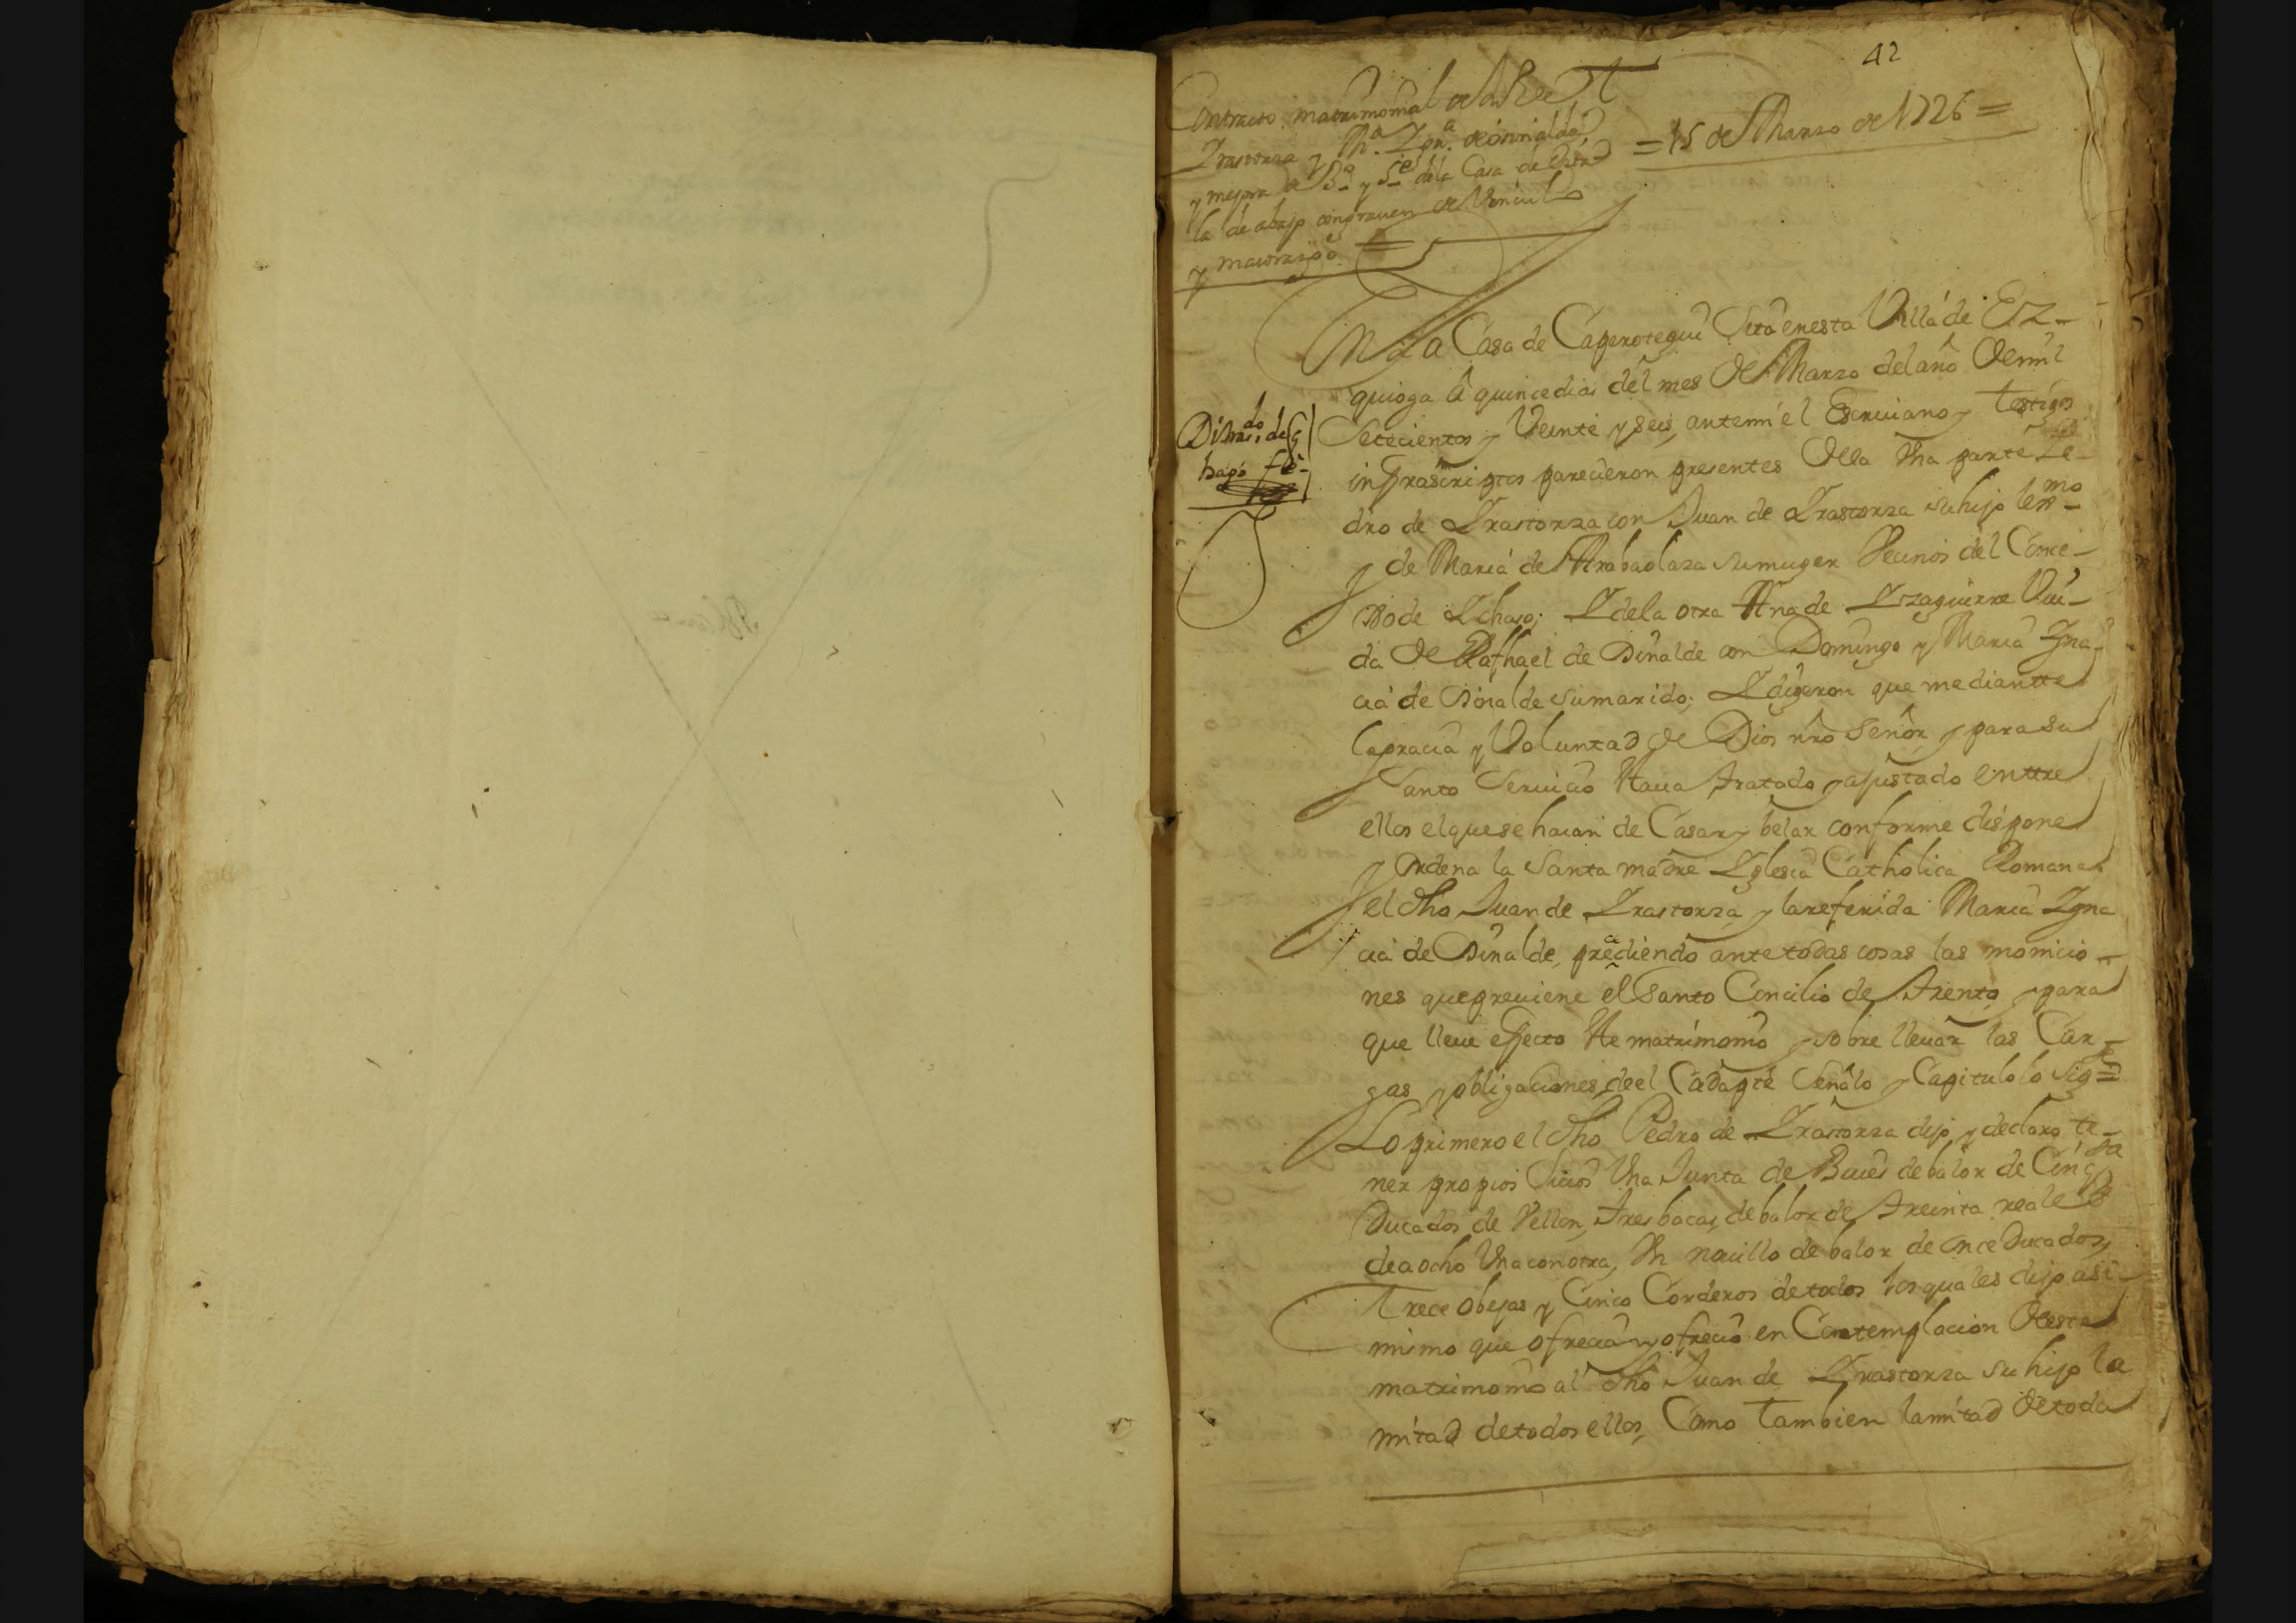 Blanca
42
Contracto matrimonial de Ju. de
Yrastorza y Mª. Ygnª. de oiñialde
y mejora de 3º y 5º de la Casa de
la de abajo con gravamen de Vinculo
y maiorazgo =
= 15 de Marzo de 1726 =
En La Casa de Caperotegui Sita en esta Villa de Ez-
quioga â quince dias del mes de Marzo del año de mil
Setecientos y Veinte y seis, antemi el Escriuano y testigos
infrascriptos parecieron presentes de la Vna parte Pe-
dro de Yrastorza con Juan de Yrastorza su hijo lexmo
y de Maria de Arabaolaza su muger Vecinos del Conce-
Do de Ychaso; Y de la otra Ana de Yzaguirre Viu-
da de Raphael de Oiñalde con Domingo y Maria Ygna-
cia de Oiñalde su marido; Y dixeron que mediantte
la gracia y Voluntad de Dios nrô Señor y para su
Santo Seruicio Haua tratado y ajustado enttre
ellos el que se hacan de Casar y belar conforme dispone
y Ordena la Santa madre Yglesia Catholica Romana
el dho Juan de Yrastorza y la referida Maria Ygna
cia de Oiñalde, precediendo ante todas cosas las monicio-
nes que preuiene el Santo Concilio de Trento, y para
que lleue effecto Hte matrimonio y sobre lleuar las Car-
gas y obligaciones de el Cada pte Señalo y Capitulo lo sigte =
Lo primero el dho Pedro de Yrastorza dijo y declaro te-
ner propios Suios Vna Junta de Bueies de balor de Cinqta
Ducados de Vellon, tres bacas de balor de treinta reales
de a ocho Vna con otra, Vn nouillo de balor de once Ducados,
Trece obejas y Cinco Corderos de todos los quales dijo asi-
mismo que ofrecia y ofrecio en Contemplacion de este
matrimonio al dho Juan de Yrastorza su hijo la
mitad de todos ellos, Como tambien la mitad de toda
do
hago fe